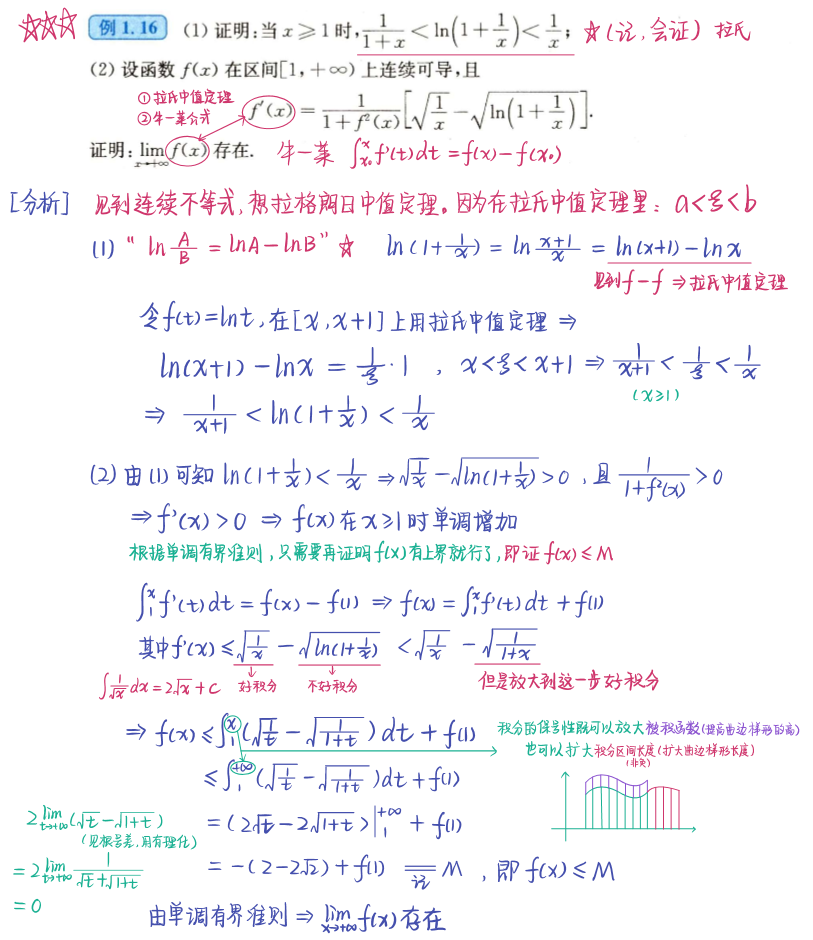 ☆☆☆ 例 1.16 (1) 证明:当 x ≥ 1 时, 1/(1+x) < ln(1+1/x) < 1/x; ☆(记,会证) 拉氏
(2) 设函数 f(x) 在区间[1,+∞)上连续可导,且
① 拉氏中值定理
② 牛—莱公式
f'(x) = 1/(1+f²(x)) [√(1/x) - √(ln(1+1/x))].
证明: lim_{x→+∞} f(x) 存在. 牛—莱 ∫_{x₀}^{x} f'(t)dt = f(x)-f(x₀)
[分析] 见到连续不等式,想拉格朗日中值定理。因为在拉氏中值定理里: a<ξ<b
(1) “ ln A/B = lnA-lnB” ☆ ln(1+1/x) = ln (x+1)/x = ln(x+1)-lnx
见到f-f ⇒拉氏中值定理
令f(t)=lnt,在[x,x+1]上用拉氏中值定理 ⇒
ln(x+1)-lnx = 1/ξ·1 , x<ξ<x+1 ⇒ 1/(x+1) < 1/ξ < 1/x
(x≥1)
⇒ 1/(x+1) < ln(1+1/x) < 1/x
(2) 由(1)可知 ln(1+1/x) < 1/x ⇒ √(1/x) - √(ln(1+1/x)) > 0 ,且 1/(1+f²(x)) > 0
⇒ f'(x)>0 ⇒ f(x)在x≥1时单调增加
根据单调有界准则,只需要再证明f(x)有上界就行了,即证f(x)≤M
∫_1^x f'(t)dt = f(x)-f(1) ⇒ f(x) = ∫_1^x f'(t)dt + f(1)
其中f'(x) ≤ √(1/x) - √(ln(1+1/x)) < √(1/x) - √(1/(1+x))
∫ 1/√x dx = 2√x + C 好积分 不好积分 但是放大到这一步好积分
⇒ f(x) ≤ ∫_1^x (√(1/t) - √(1/(1+t)))dt + f(1)
积分的保号性既可以放大被积函数(提高曲边梯形的高)
也可以扩大积分区间长度(扩大曲边梯形长度)
(非负)
≤ ∫_1^{+∞} (√(1/t) - √(1/(1+t)))dt + f(1)
2 lim_{t→+∞} (√t - √(1+t))
(见根号差,用有理化)
= (2√t - 2√(1+t))|_1^{+∞} + f(1)
= 2 lim_{t→+∞} 1/(√t+√(1+t))
= 0
= -(2-2√2) + f(1) ══记 M ,即 f(x)≤M
由单调有界准则 ⇒ lim_{x→+∞} f(x) 存在